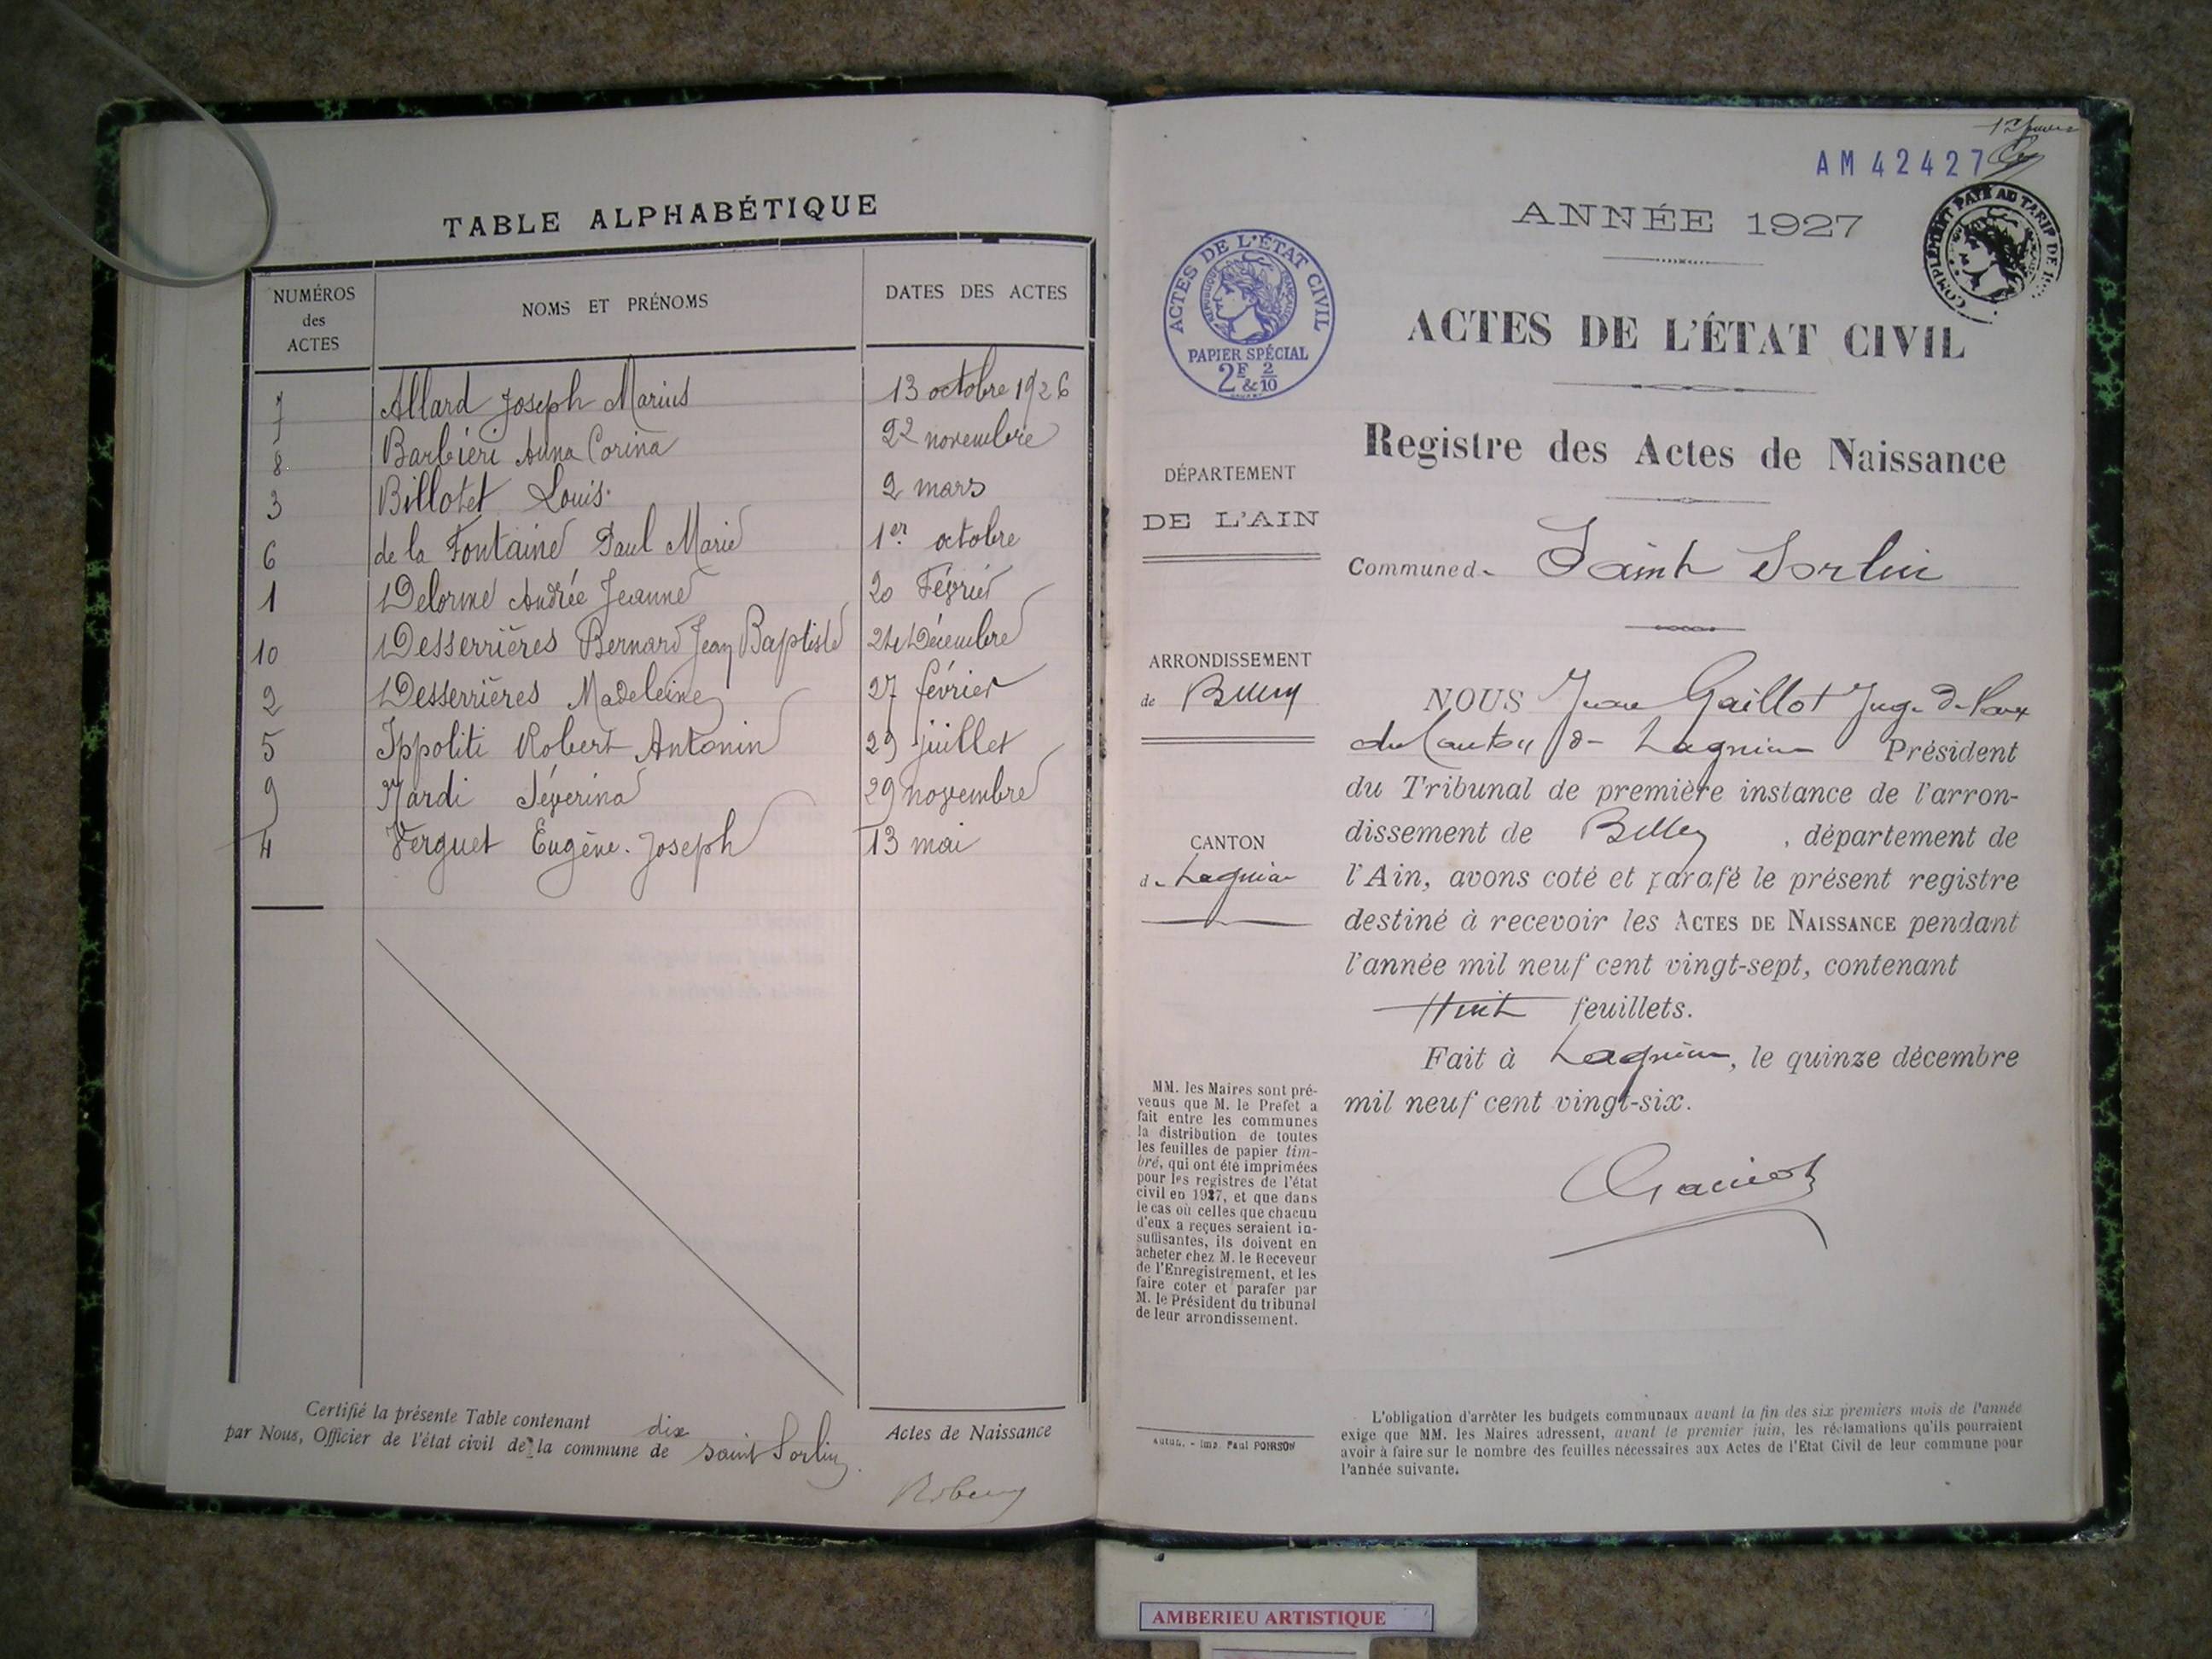 TABLE ALPHABÉTIQUE
NUMÉROS des ACTES
NOMS ET PRÉNOMS
DATES DES ACTES
7 Allard Joseph Marius 13 octobre 1926
8 Barbiéri Anna Corina 22 novembre
3 Billotet Louis 2 mars
6 de la Fontaine Paul Marie 1er octobre
1 Delorme Andrée Jeanne 20 Février
10 Desserrières Bernard Jean Baptiste 24 Décembre
2 Desserrières Madeleine 27 février
5 Ippoliti Robert Antonin 29 juillet
9 Nardi Séverina 29 novembre
4 Verguet Eugène Joseph 13 mai
Certifié la présente Table contenant dix Actes de Naissance
par Nous, Officier de l'état civil de la commune de saint Sorlin
AM 42427
ANNÉE 1927
COMPLÉMENT PAYÉ AU TARIF DE
ACTES DE L'ÉTAT CIVIL
RÉPUBLIQUE FRANÇAISE
PAPIER SPÉCIAL
2F & 2/10
ACTES DE L'ÉTAT CIVIL
Registre des Actes de Naissance
DÉPARTEMENT
DE L'AIN
Commune d Saint Sorlin
ARRONDISSEMENT
de Belley
CANTON
de Lagnieu
NOUS Jean Gaillot Juge de Paix
du Canton de Lagnieu Président
du Tribunal de première instance de l'arron-
dissement de Belley, département de
l'Ain, avons coté et parafé le présent registre
destiné à recevoir les ACTES DE NAISSANCE pendant
l'année mil neuf cent vingt-sept, contenant
Huit feuillets.
Fait à Lagnieu, le quinze décembre
mil neuf cent vingt-six.
MM. les Maires sont pré-
venus que M. le Préfet a
fait entre les communes
la distribution de toutes
les feuilles de papier tim-
bré, qui ont été imprimées
pour les registres de l'état
civil en 1927, et que dans
le cas où celles que chacun
d'eux a reçues seraient in-
suffisantes, ils doivent en
acheter chez M. le Receveur
de l'Enregistrement, et les
faire coter et parafer par
M. le Président du tribunal
de leur arrondissement.
Autun. - Imp. Paul POIRSON
L'obligation d'arrêter les budgets communaux avant la fin des six premiers mois de l'année
exige que MM. les Maires adressent, avant le premier juin, les réclamations qu'ils pourraient
avoir à faire sur le nombre des feuilles nécessaires aux Actes de l'Etat Civil de leur commune pour
l'année suivante.
AMBERIEU ARTISTIQUE